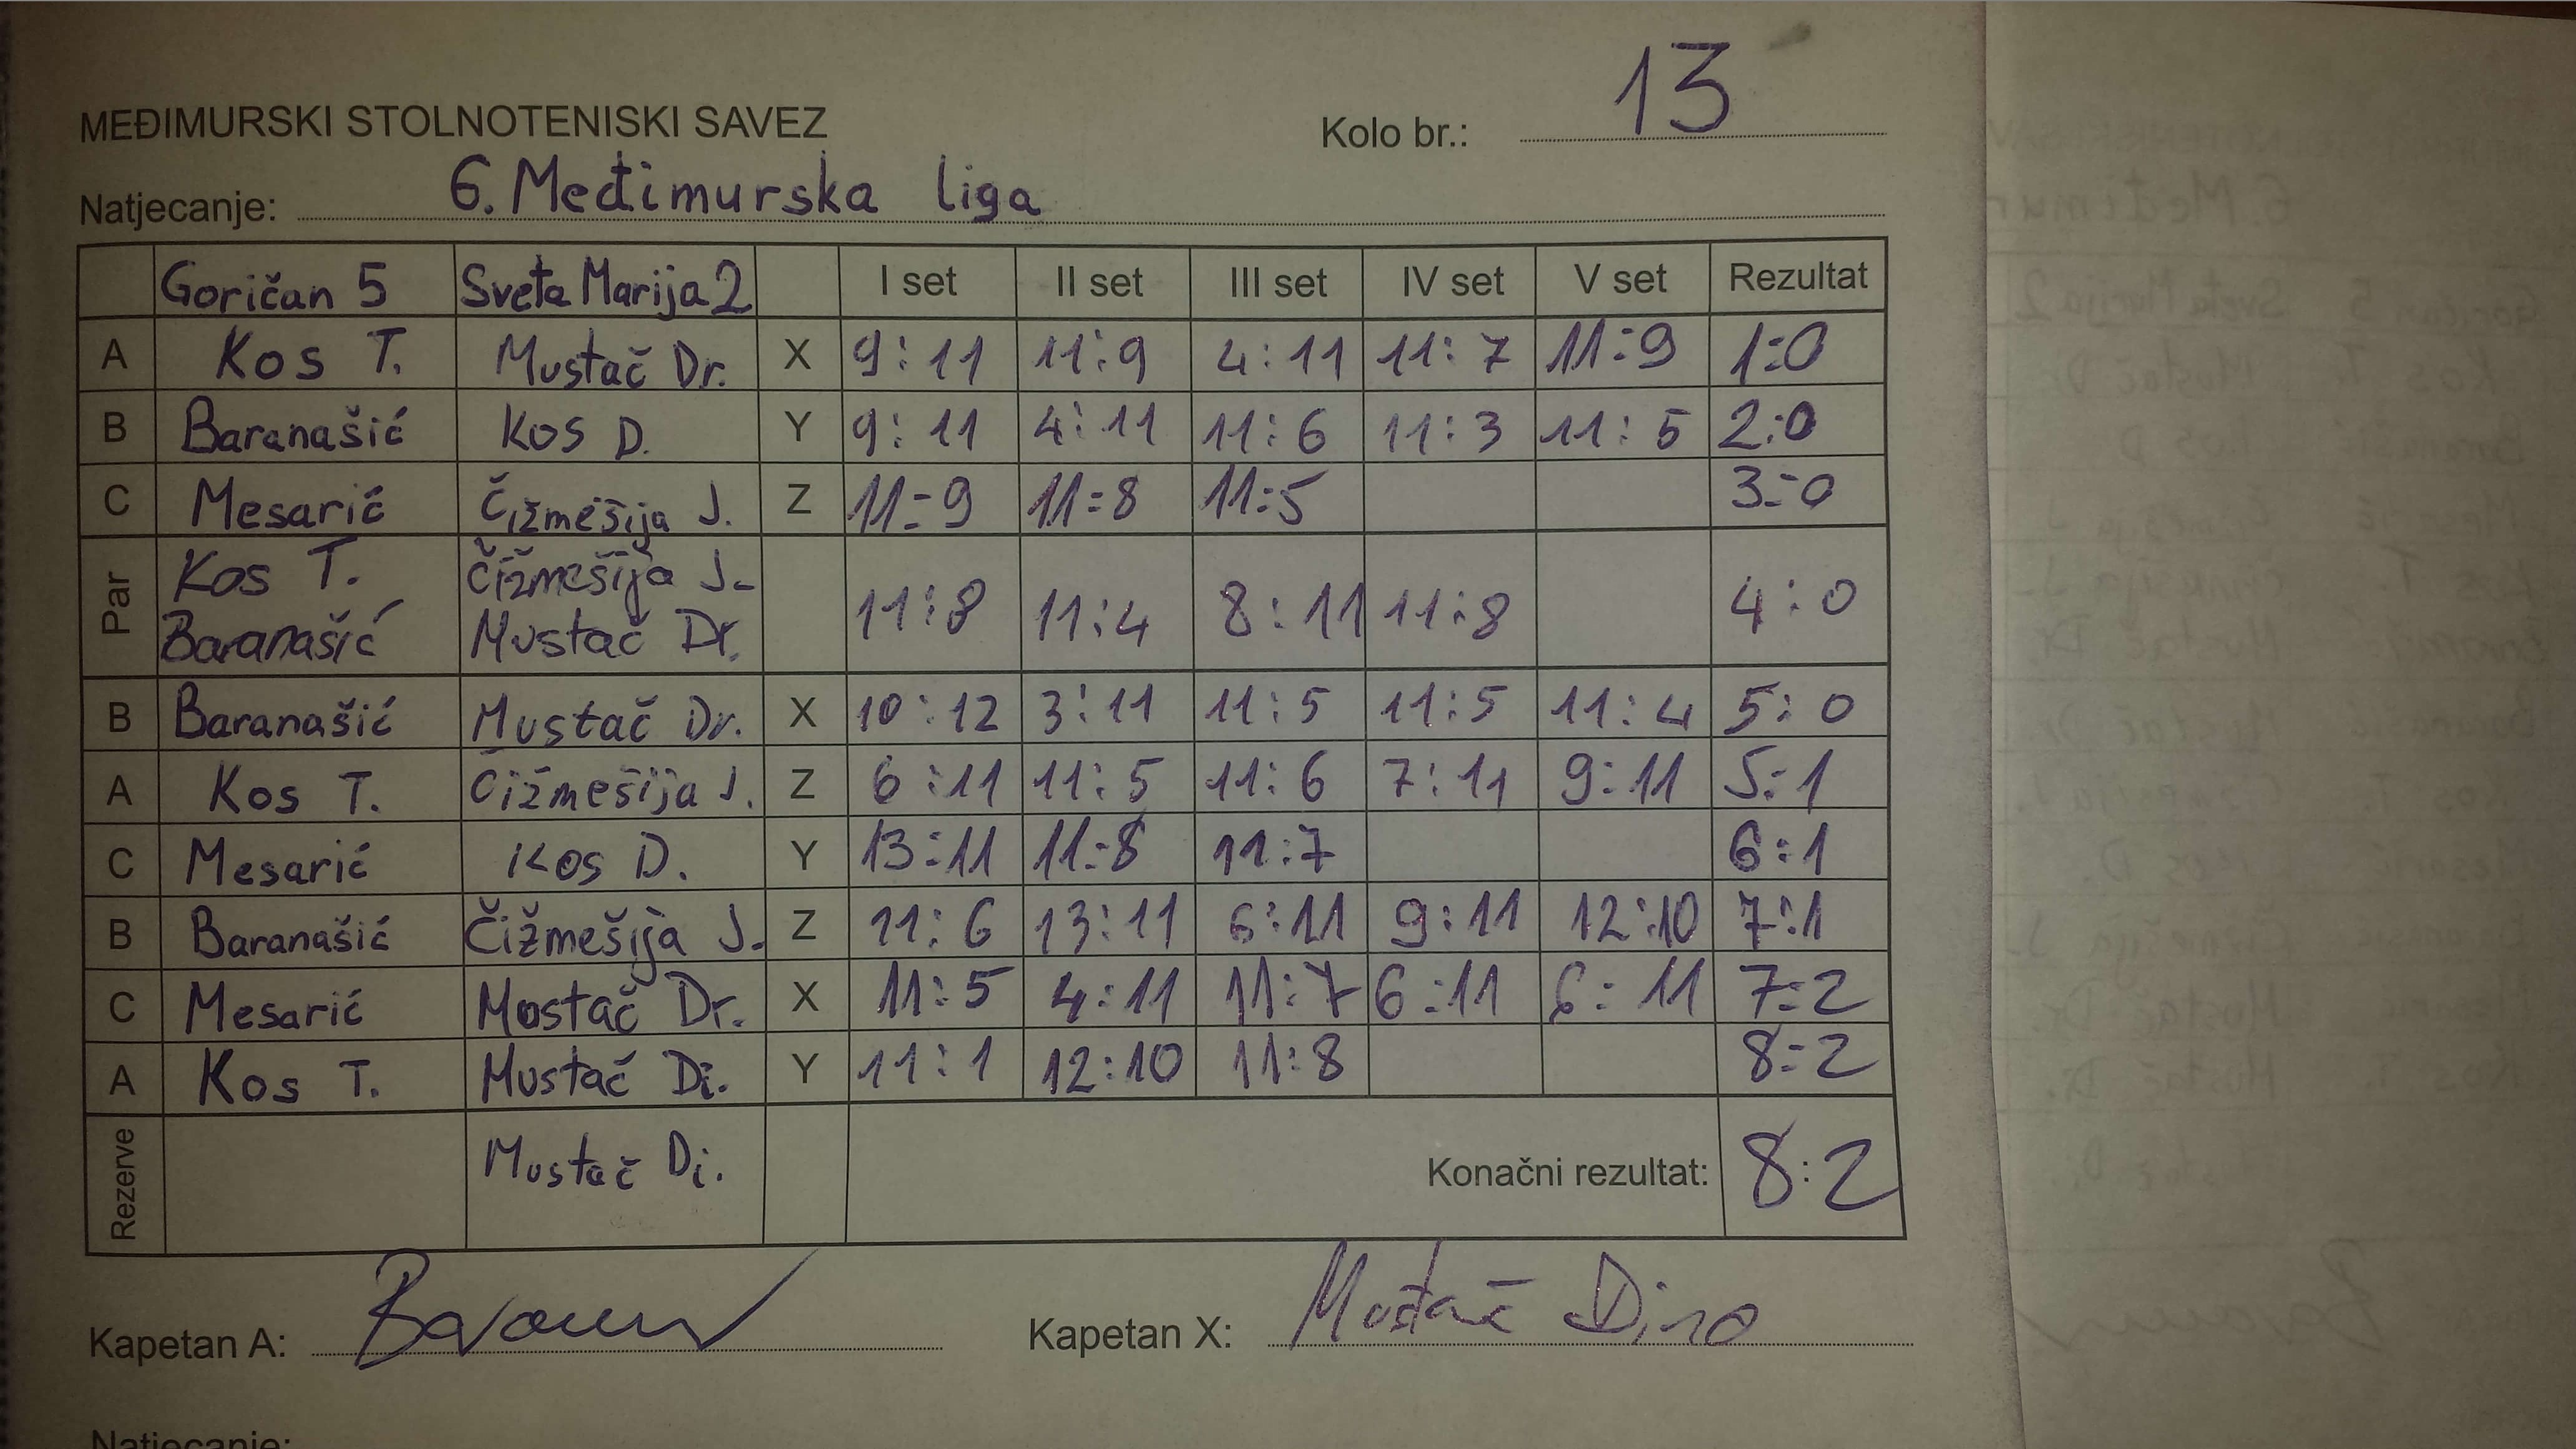 MEĐIMURSKI STOLNOTENISKI SAVEZ Kolo br.: 13
Natjecanje: 6. Međimurska liga
Goričan 5 Sveta Marija 2 I set II set III set IV set V set Rezultat
A Kos T. Mustač Dr. X 9:11 11:9 4:11 11:7 11:9 1:0
B Baranašić Kos D. Y 9:11 4:11 11:6 11:3 11:5 2:0
C Mesarić Čižmešija J. Z 11:9 11:8 11:5 3:0
Par Kos T. Čižmešija J. 11:8 11:4 8:11 11:8 4:0
Baranašić Mustač Dr.
B Baranašić Mustač Dr. X 10:12 3:11 11:5 11:5 11:4 5:0
A Kos T. Čižmešija J. Z 6:11 11:5 11:6 7:11 9:11 5:1
C Mesarić Kos D. Y 13:11 11:8 11:7 6:1
B Baranašić Čižmešija J. Z 11:6 13:11 6:11 9:11 12:10 7:1
C Mesarić Mustač Dr. X 11:5 4:11 11:7 6:11 6:11 7:2
A Kos T. Mustač Di. Y 11:1 12:10 11:8 8:2
Rezerve Mustač Di. Konačni rezultat: 8:2
Kapetan A: Kapetan X: Mustač Dino
Natjecanje: